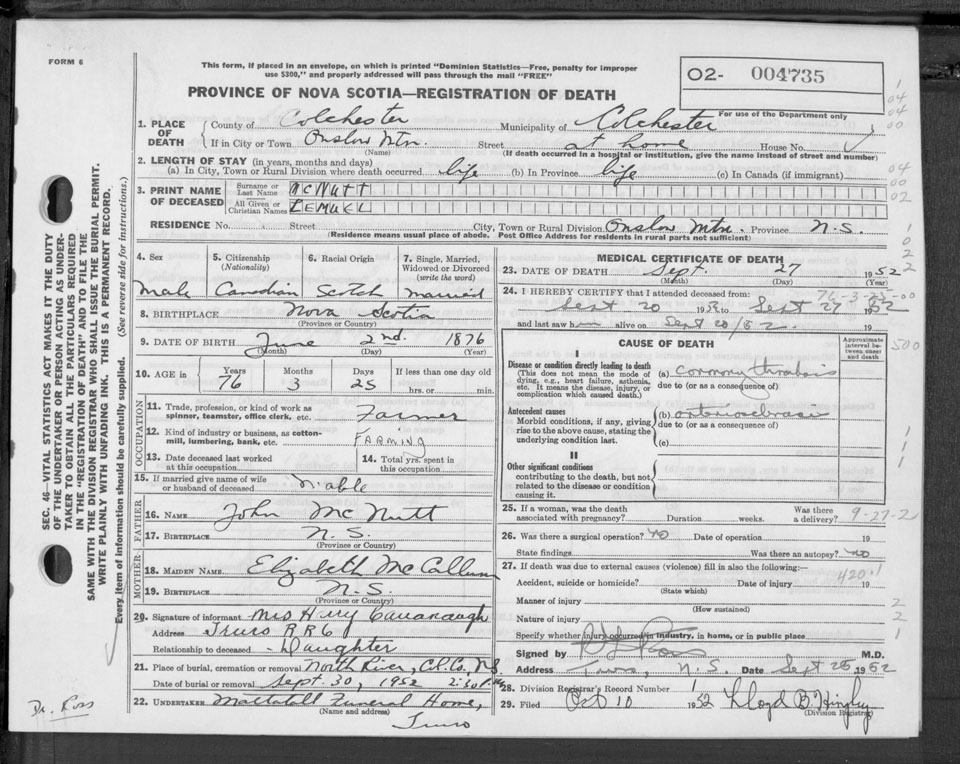 FORM 6
This form, if placed in an envelope, on which is printed "Dominion Statistics—Free, penalty for improper
use $300," and properly addressed will pass through the mail "FREE"
PROVINCE OF NOVA SCOTIA—REGISTRATION OF DEATH
02- 004735
For use of the Department only
1. PLACE OF DEATH
County of Colchester Municipality of Colchester
If in City or Town Onslow Mtn. Street at home House No.
(Name) (If death occurred in a hospital or institution, give the name instead of street and number)
2. LENGTH OF STAY (in years, months and days)
(a) In City, Town or Rural Division where death occurred life (b) In Province life (c) In Canada (if immigrant)
3. PRINT NAME OF DECEASED
Surname or Last Name McNUTT
All Given or Christian Names LEMUEL
RESIDENCE No. Street City, Town or Rural Division Onslow Mtn. Province N.S.
(Residence means usual place of abode. Post Office Address for residents in rural parts not sufficient)
4. Sex Male
5. Citizenship (Nationality) Canadian
6. Racial Origin Scotch
7. Single, Married, Widowed or Divorced (write the word) Married
8. BIRTHPLACE Nova Scotia
(Province or Country)
9. DATE OF BIRTH June 2nd. 1876
(Month) (Day) (Year)
10. AGE in Years 76 Months 3 Days 25 If less than one day old hrs. or min.
OCCUPATION
11. Trade, profession, or kind of work as spinner, teamster, office clerk, etc. Farmer
12. Kind of industry or business, as cotton-mill, lumbering, bank, etc. FARMING
13. Date deceased last worked at this occupation
14. Total yrs. spent in this occupation
15. If married give name of wife or husband of deceased
FATHER
16. NAME John McNutt
17. BIRTHPLACE N.S.
(Province or Country)
MOTHER
18. MAIDEN NAME Elizabeth McCallum
19. BIRTHPLACE N.S.
(Province or Country)
20. Signature of informant Mrs Harry Cavanaugh
Address Truro RR6
Relationship to deceased Daughter
21. Place of burial, cremation or removal North River, Col. Co., N.S.
Date of burial or removal Sept. 30, 1952 2:30 P.M.
22. UNDERTAKER Mattatall Funeral Home,
(Name and address)
Truro
MEDICAL CERTIFICATE OF DEATH
23. DATE OF DEATH Sept. 27 1952
(Month) (Day) (Year)
24. I HEREBY CERTIFY that I attended deceased from:
Sept 20 to Sept 27 1952
and last saw him alive on Sept 20/52 19
CAUSE OF DEATH
Approximate interval between onset and death
I
Disease or condition directly leading to death
(This does not mean the mode of dying, e.g., heart failure, asthenia, etc. It means the disease, injury, or complication which caused death.)
(a) Coronary thrombosis
due to (or as a consequence of)
Antecedent causes
Morbid conditions, if any, giving rise to the above cause, stating the underlying condition last.
(b) arteriosclerosis
due to (or as a consequence of)
(c)
II
Other significant conditions
contributing to the death, but not related to the disease or condition causing it.
25. If a woman, was the death associated with pregnancy? Duration weeks. Was there a delivery?
9-27-2
26. Was there a surgical operation? no Date of operation 19
State findings Was there an autopsy? no
27. If death was due to external causes (violence) fill in also the following:—
420.1
Accident, suicide or homicide? Date of injury 19
(State which)
Manner of injury
(How sustained)
Nature of injury
Specify whether injury occurred in industry, in home, or in public place
Signed by M.D.
Address Truro, N.S. Date Sept 28 1952
28. Division Registrar's Record Number 1
29. Filed Oct 10 1952 Lloyd B.
(Division Registrar)
SEC. 46—VITAL STATISTICS ACT MAKES IT THE DUTY
OF THE UNDERTAKER OR PERSON ACTING AS UNDER-
TAKER TO OBTAIN ALL THE PARTICULARS REQUIRED
IN THE "REGISTRATION OF DEATH" AND TO FILE THE
SAME WITH THE DIVISION REGISTRAR WHO SHALL ISSUE THE BURIAL PERMIT.
WRITE PLAINLY WITH UNFADING INK. THIS IS A PERMANENT RECORD.
Every item of information should be carefully supplied. (See reverse side for instructions.)
Dr. Ross